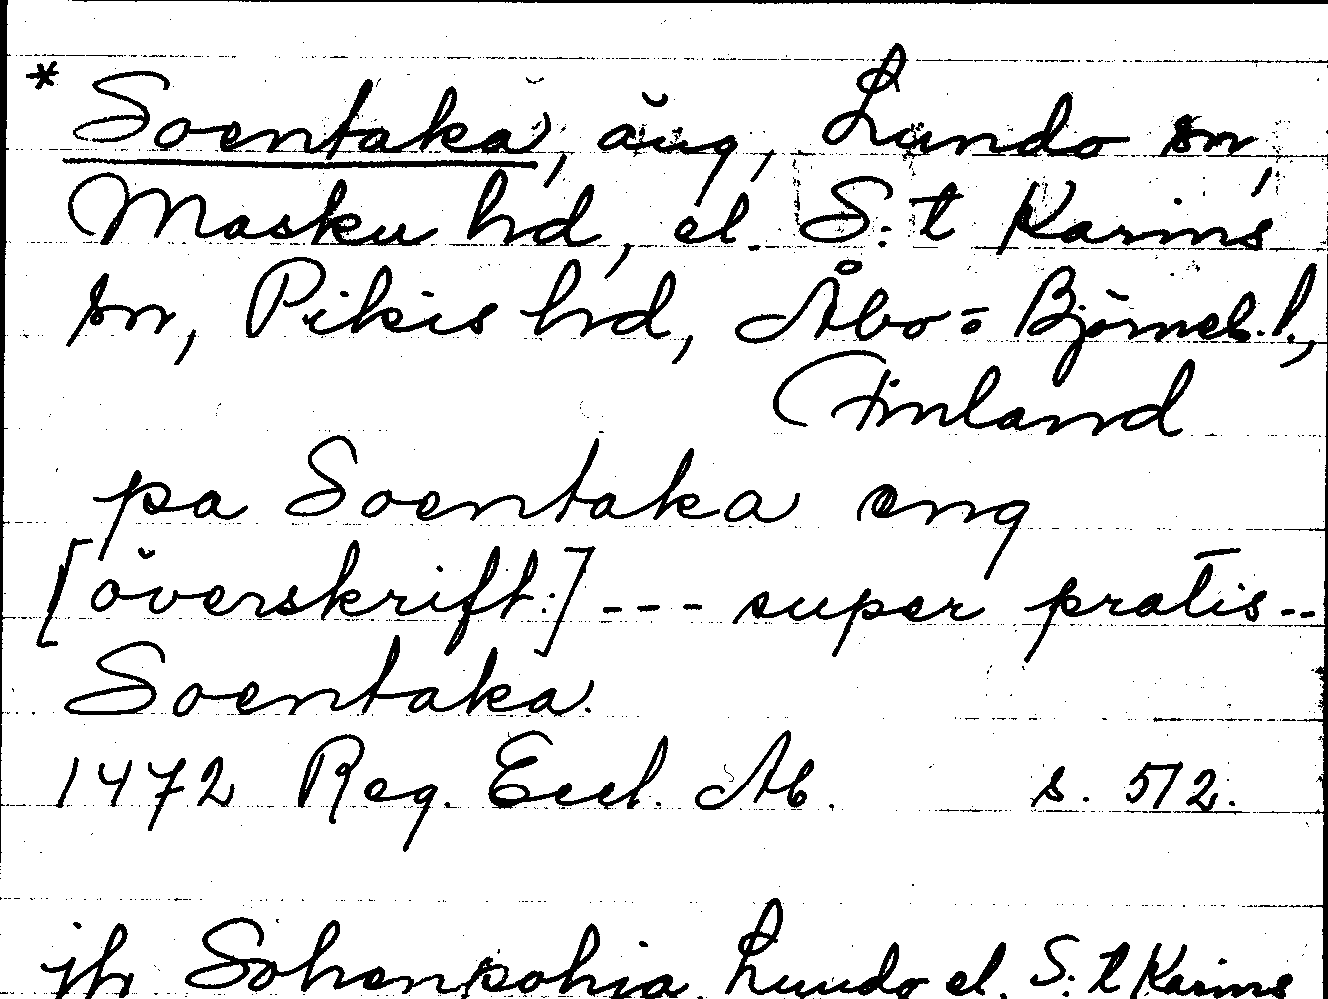 * Soentaka, äng, Lundo sn,
Masku hd, el. S:t Karins
sn, Pikis hd, Åbo=Björneb. l.,
Finland
pa Soentaka eng
[överskrift:] --- super pratis --
Soentaka.
1472 Reg. Eccl. Ab. s. 512.
jfr Sohenpohia, Lundo el. S:t Karins